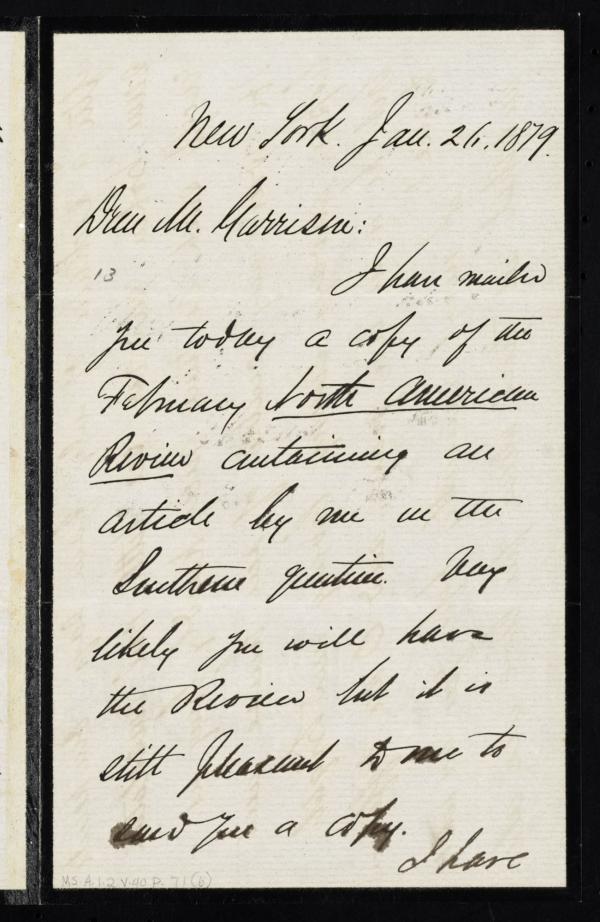 New York. Jan. 26, 1879.
Dear Mr. Garrison:
13
I have mailed
you today a copy of the
February North American
Review containing an
article by me on the
Southern question. Very
likely you will have
the Review but it is
still pleasant to me to
send you a copy.
I have
MS.A.1.2 V.40 P. 71(b)